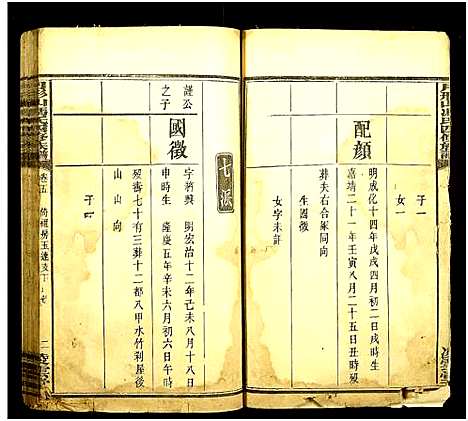 子一
女一
配顏
明成化十四年戊戌四月初二日戌時生
嘉靖二十一年壬寅八月二十五日丑時歿
葬夫右合冢同向
女字未詳
七派
謹公
之子
國徵
明宏治十二年己未八月十八日
申時生 隆慶五年辛未六月初六日午時
歿壽七十有三葬十二都八甲水竹刹屋後
山 山 向
卷三五
二